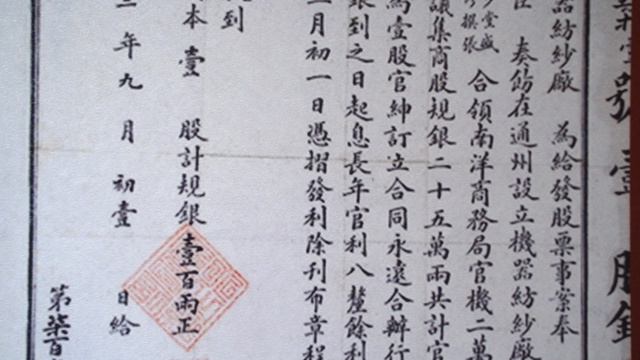 第壹號壹股
器紡紗廠 為給發股票事案奉
奏飭在通州設立機器紡紗廠
堂盛
撰張
合領南洋商務局官機二萬
議集商股規銀二十五萬兩共計官
為壹股官紳訂立合同永遠合辦行
銀到之日起息長年官利八釐餘利
三月初一日憑摺發利除刊布章程
收到
本壹股計規銀壹百兩正
二年九月初壹日給
第柒百